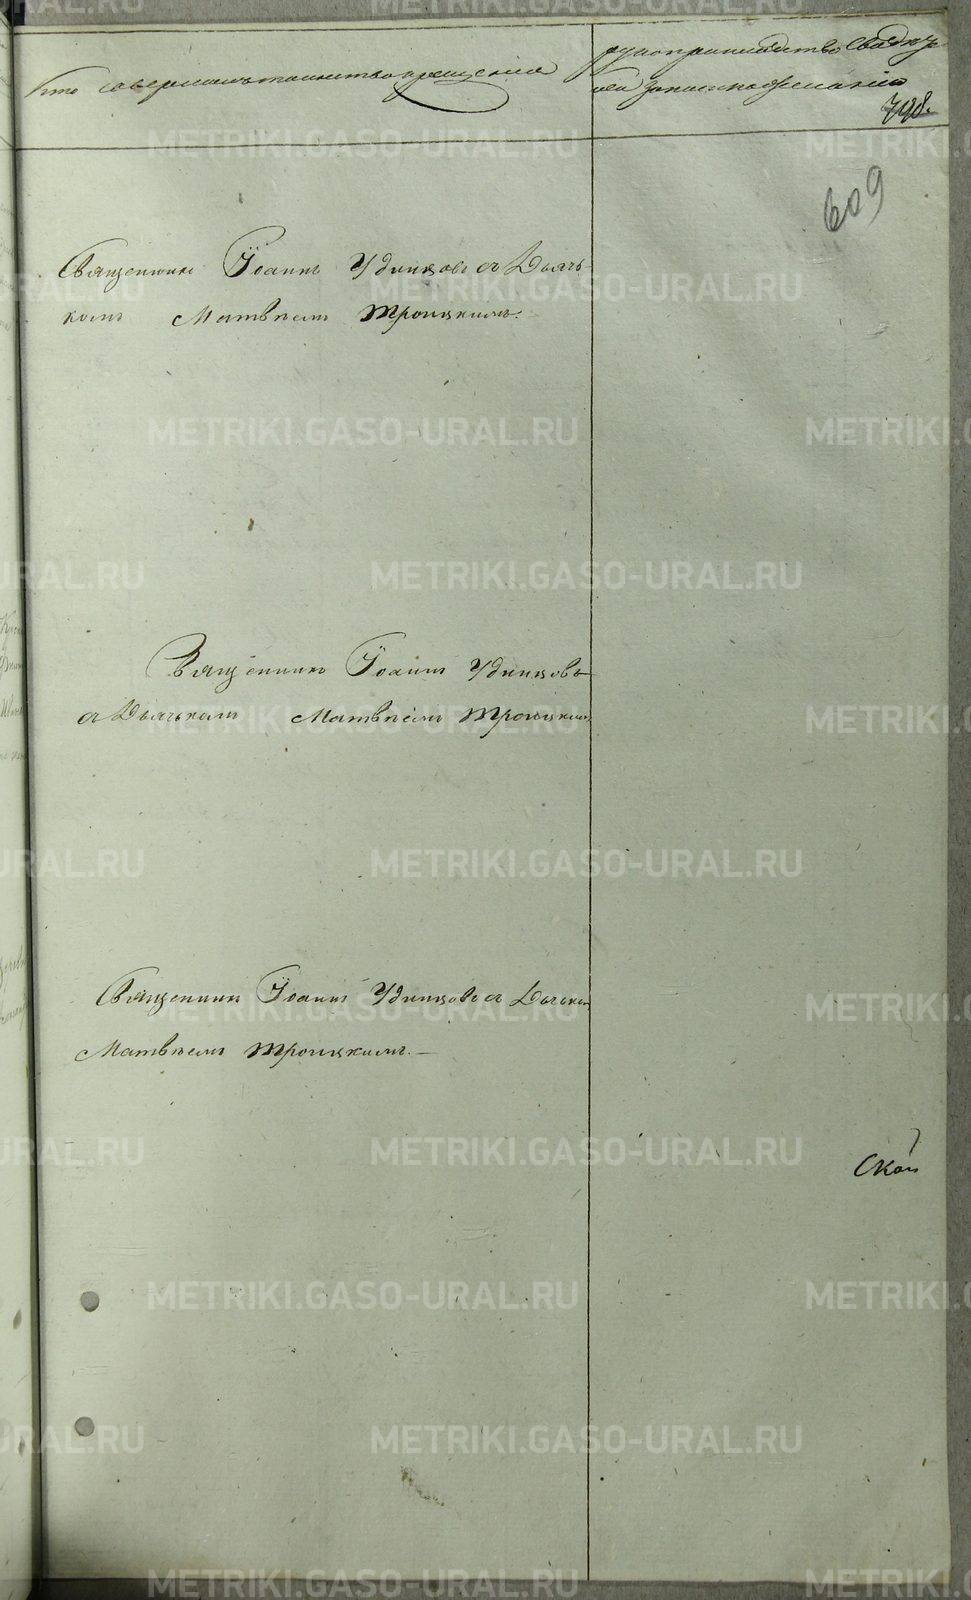 кто совершалъ таинство крещенiя
рукоприкладство свидѣте
лей записи по желанiю
798.
609
Священникъ Iоаннъ Удинцовъ съ Дьяч-
комъ Матвѣемъ Троицкимъ.
Священникъ Iоаннъ Удинцовъ
съ Дьячькомъ Матвѣемъ Троицкимъ
Священникъ Iоаннъ Удинцовъ съ Дьячько
Матвѣемъ Троицкимъ. —
METRIKI.GASO-URAL.RU